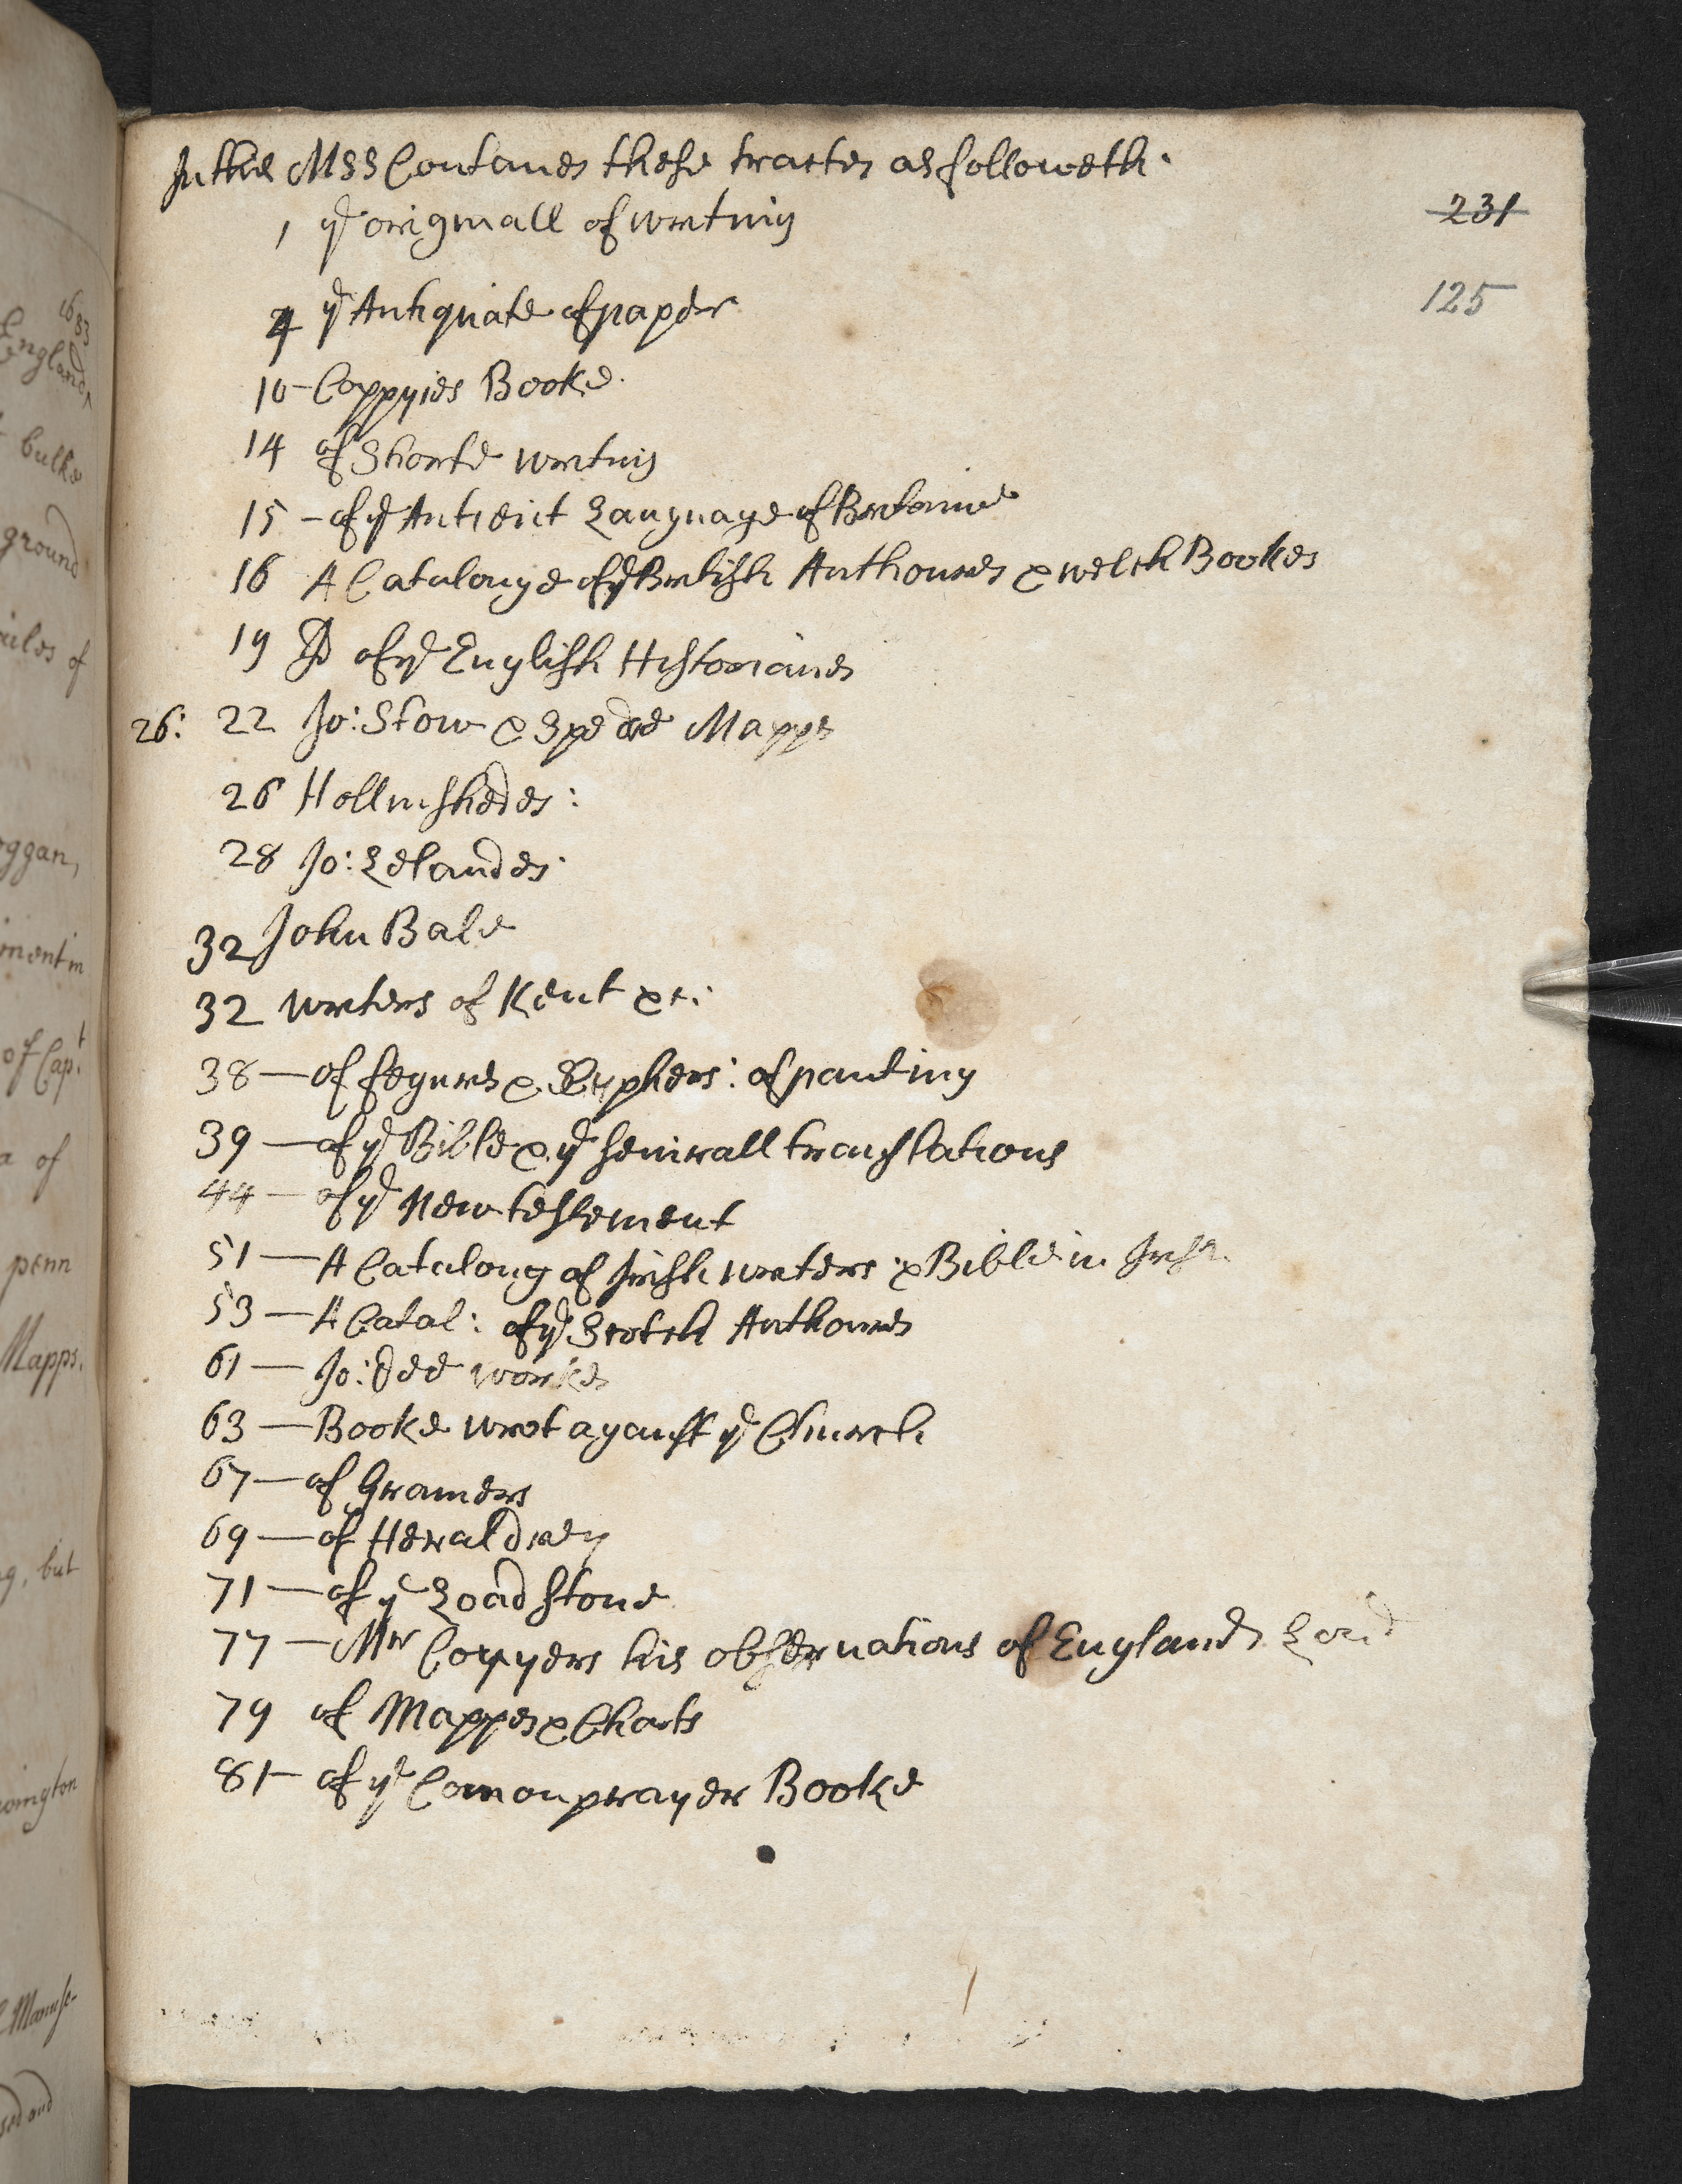 In this MSS Contanes these tractes as followeth.
231
1 yͤ originall of writing
125
4 yͤ Antiquate of paper
10 - Coppyies Booke.
14 of Shorte writing
15 - of yͤ Antient Language of Bretanie
16 A Catalouge of yͤ British Authoures & welch Bookes
19 D of yͤ English Historianes
26: 22 Jo: Stow & Spede Mapps
26 Hollinshedes:
28 Jo: Lelandes.
32 John Bale
32 writers of Kent &c:
38 — of fegures & Cyphers: of panting
39 — of yͤ Bible & yͤ severall translations
44 — of yͤ New testement
51 — A Cataloug of Irish writers & Bible in Irish
53 — A Catal: of yͤ Scotch Authoures
61 — Jo: Dee workes
63 — Booke wrot aganst yͤ Church
67 — of Gramers
69 — of Heraldrey
71 — of yͤ Load stone
77 — Mr Coyyers his observations of Englands
79 of Mappes & Charts
81 - of yͤ Comon prayer Booke